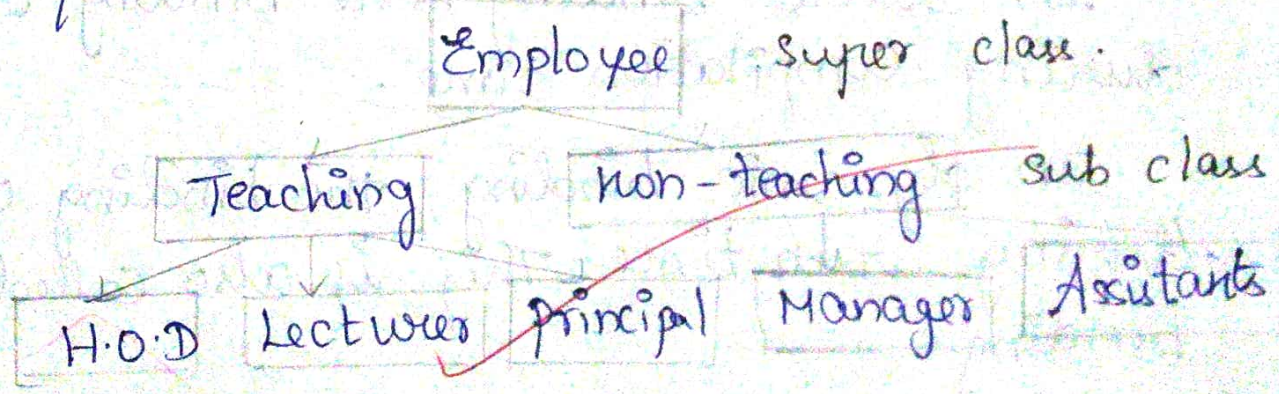 Employee super class.
Teaching non-teaching sub class
H.O.D Lecturer principal Manager Assitants